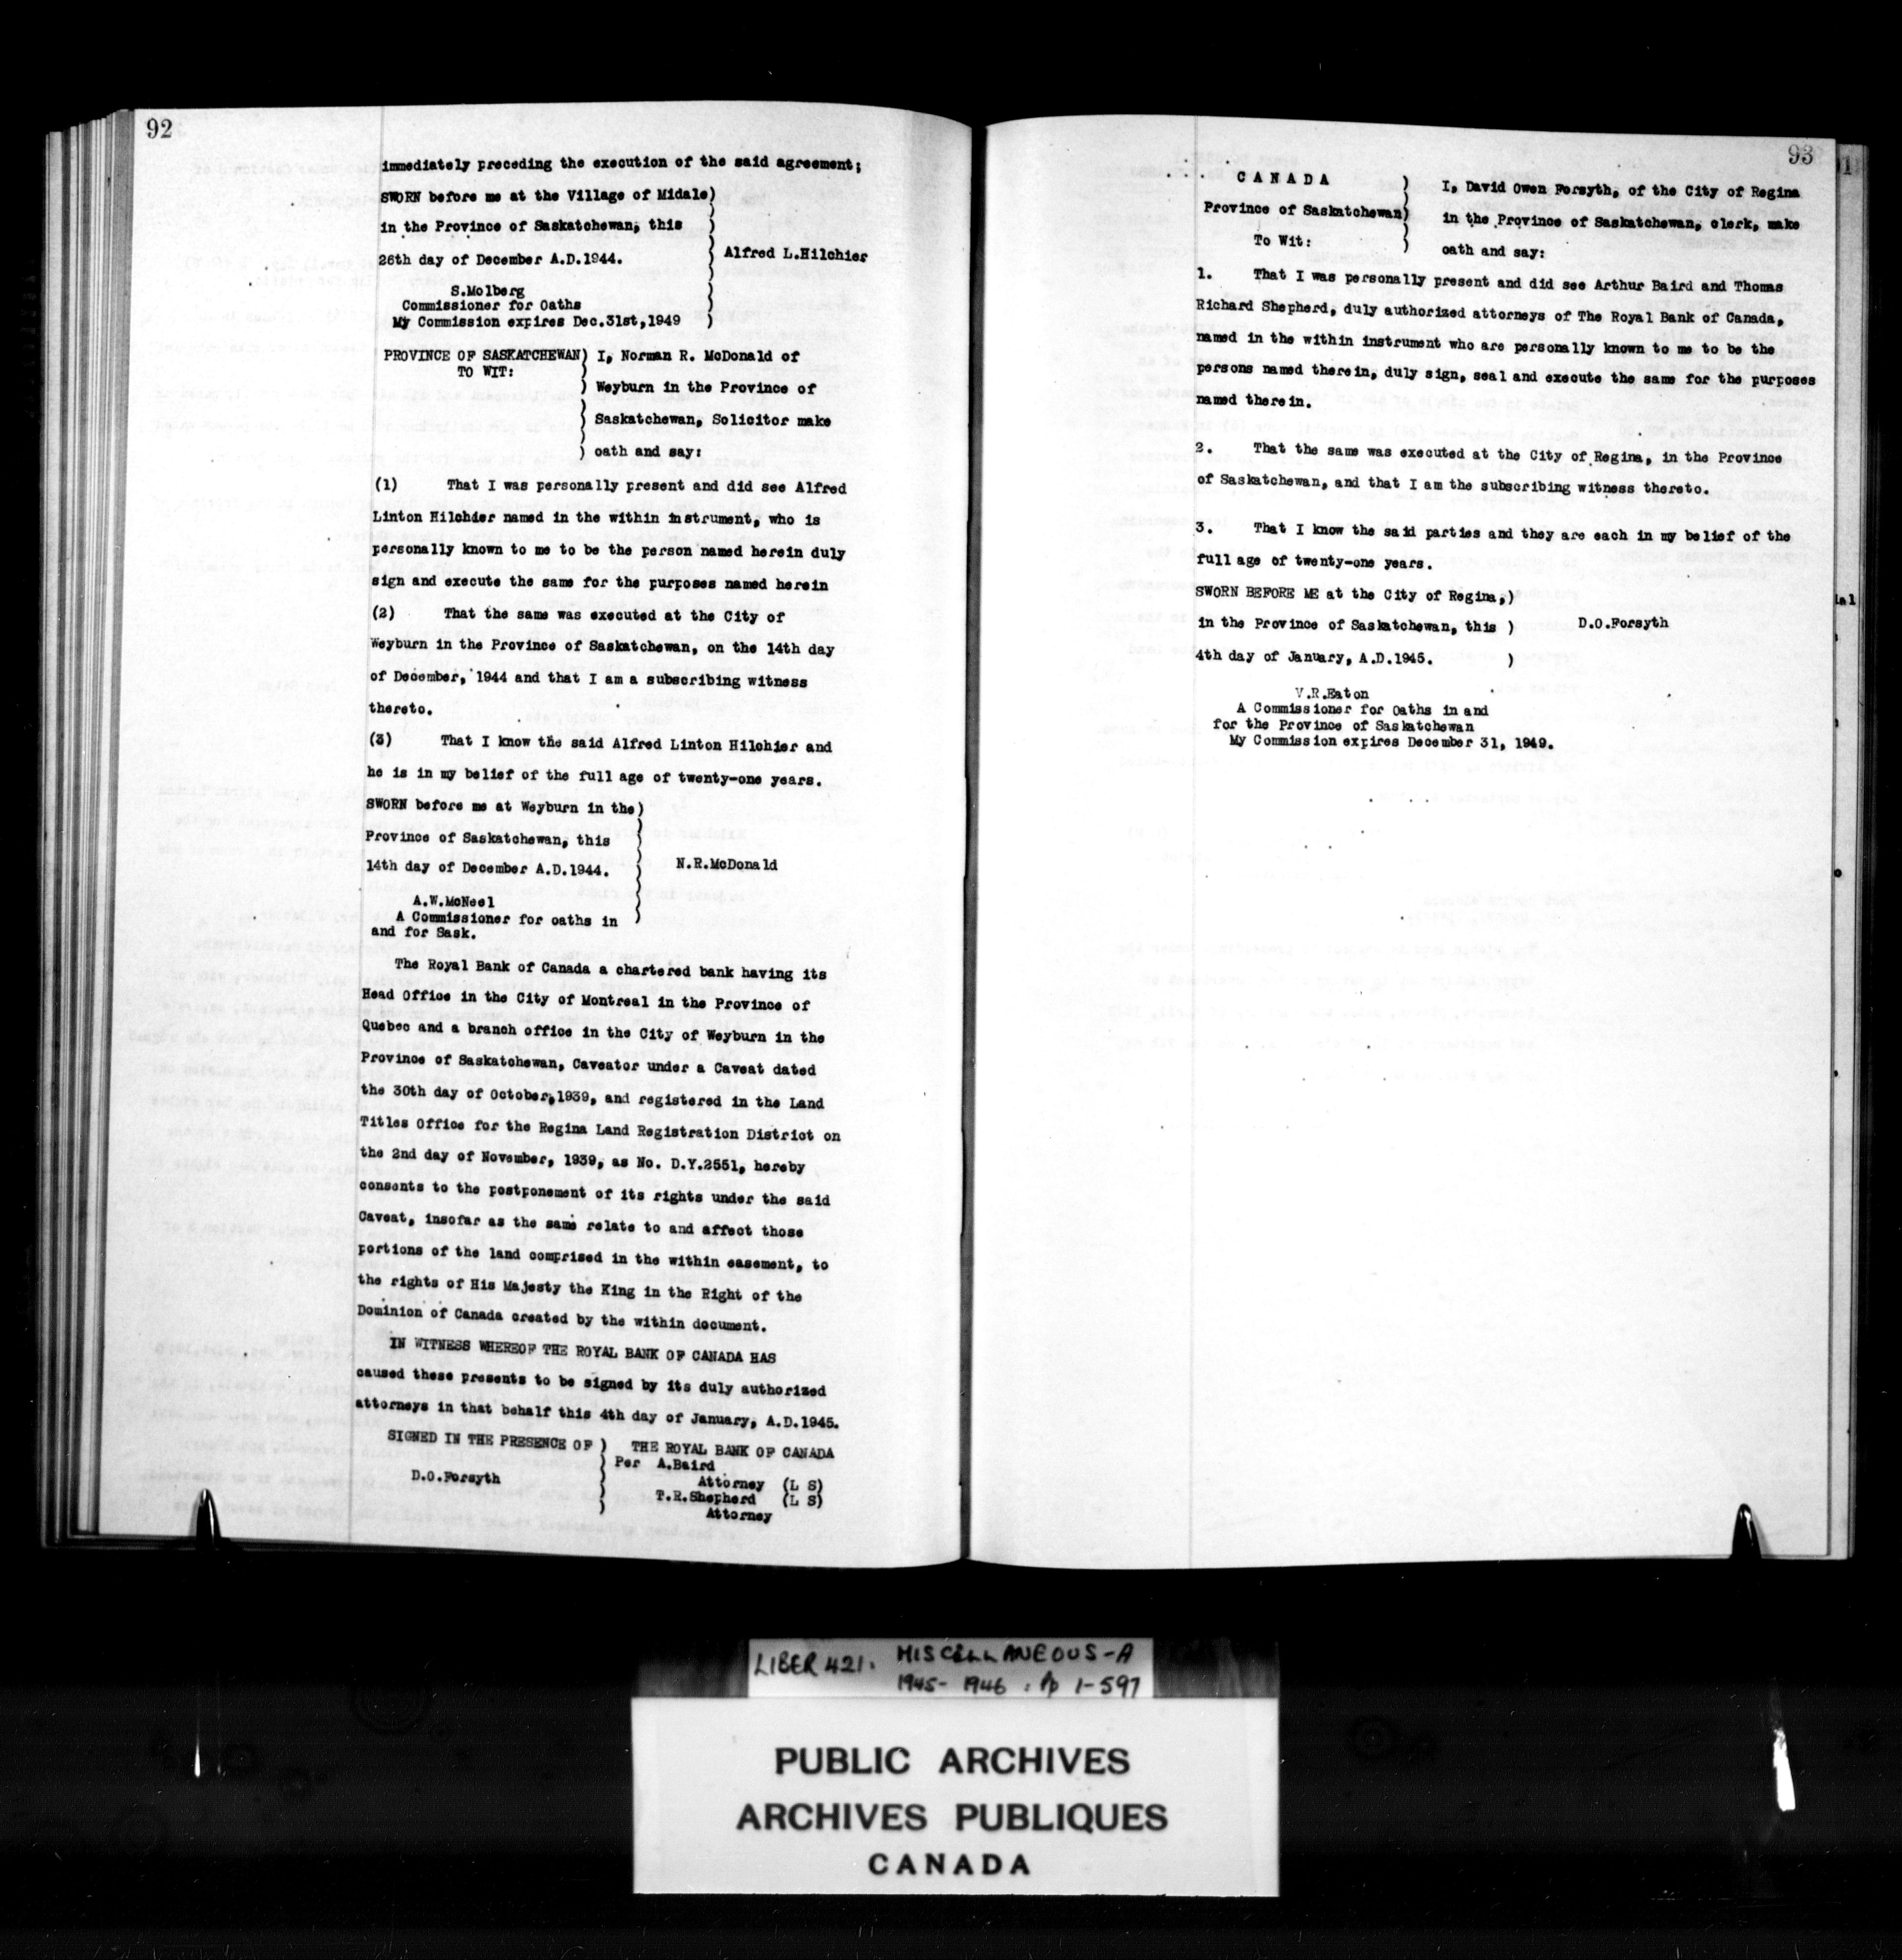 92
immediately preceding the execution of the said agreement;
SWORN before me at the Village of Midale)
in the Province of Saskatchewan, this )
26th day of December A.D.1944. ) Alfred L.Hilchier
S.Molberg
Commissioner for Oaths
My Commission expires Dec.31st,1949 )
PROVINCE OF SASKATCHEWAN) I, Norman R. McDonald of
TO WIT: )
) Weyburn in the Province of
) Saskatchewan, Solicitor make
) oath and say:
(1) That I was personally present and did see Alfred
Linton Hilchier named in the within instrument, who is
personally known to me to be the person named herein duly
sign and execute the same for the purposes named herein
(2) That the same was executed at the City of
Weyburn in the Province of Saskatchewan, on the 14th day
of December, 1944 and that I am a subscribing witness
thereto.
(3) That I know the said Alfred Linton Hilchier and
he is in my belief of the full age of twenty-one years.
SWORN before me at Weyburn in the)
Province of Saskatchewan, this )
14th day of December A.D.1944. ) N.R.McDonald
A.W.McNeel
A Commissioner for oaths in )
and for Sask.
The Royal Bank of Canada a chartered bank having its
Head Office in the City of Montreal in the Province of
Quebec and a branch office in the City of Weyburn in the
Province of Saskatchewan, Caveator under a Caveat dated
the 30th day of October,1939, and registered in the Land
Titles Office for the Regina Land Registration District on
the 2nd day of November, 1939, as No. D.Y.2551, hereby
consents to the postponement of its rights under the said
Caveat, insofar as the same relate to and affect those
portions of the land comprised in the within easement, to
the rights of His Majesty the King in the Right of the
Dominion of Canada created by the within document.
IN WITNESS WHEREOF THE ROYAL BANK OF CANADA HAS
caused these presents to be signed by its duly authorized
attorneys in that behalf this 4th day of January, A.D.1945.
SIGNED IN THE PRESENCE OF ) THE ROYAL BANK OF CANADA
) Per A.Baird
D.O.Forsyth ) Attorney (L S)
) T.R.Shepherd (L S)
Attorney
93
CANADA ) I, David Owen Forsyth, of the City of Regina
Province of Saskatchewan) in the Province of Saskatchewan, clerk, make
To Wit: ) oath and say:
1. That I was personally present and did see Arthur Baird and Thomas
Richard Shepherd, duly authorized attorneys of The Royal Bank of Canada,
named in the within instrument who are personally known to me to be the
persons named therein, duly sign, seal and execute the same for the purposes
named therein.
2. That the same was executed at the City of Regina, in the Province
of Saskatchewan, and that I am the subscribing witness thereto.
3. That I know the said parties and they are each in my belief of the
full age of twenty-one years.
SWORN BEFORE ME at the City of Regina,)
in the Province of Saskatchewan, this ) D.O.Forsyth
4th day of January, A.D.1945. )
V.R.Eaton
A Commissioner for Oaths in and
for the Province of Saskatchewan
My Commission expires December 31, 1949.
LIBER 421. MISCELLANEOUS-A
1945- 1946 : Pp 1-597
PUBLIC ARCHIVES
ARCHIVES PUBLIQUES
CANADA